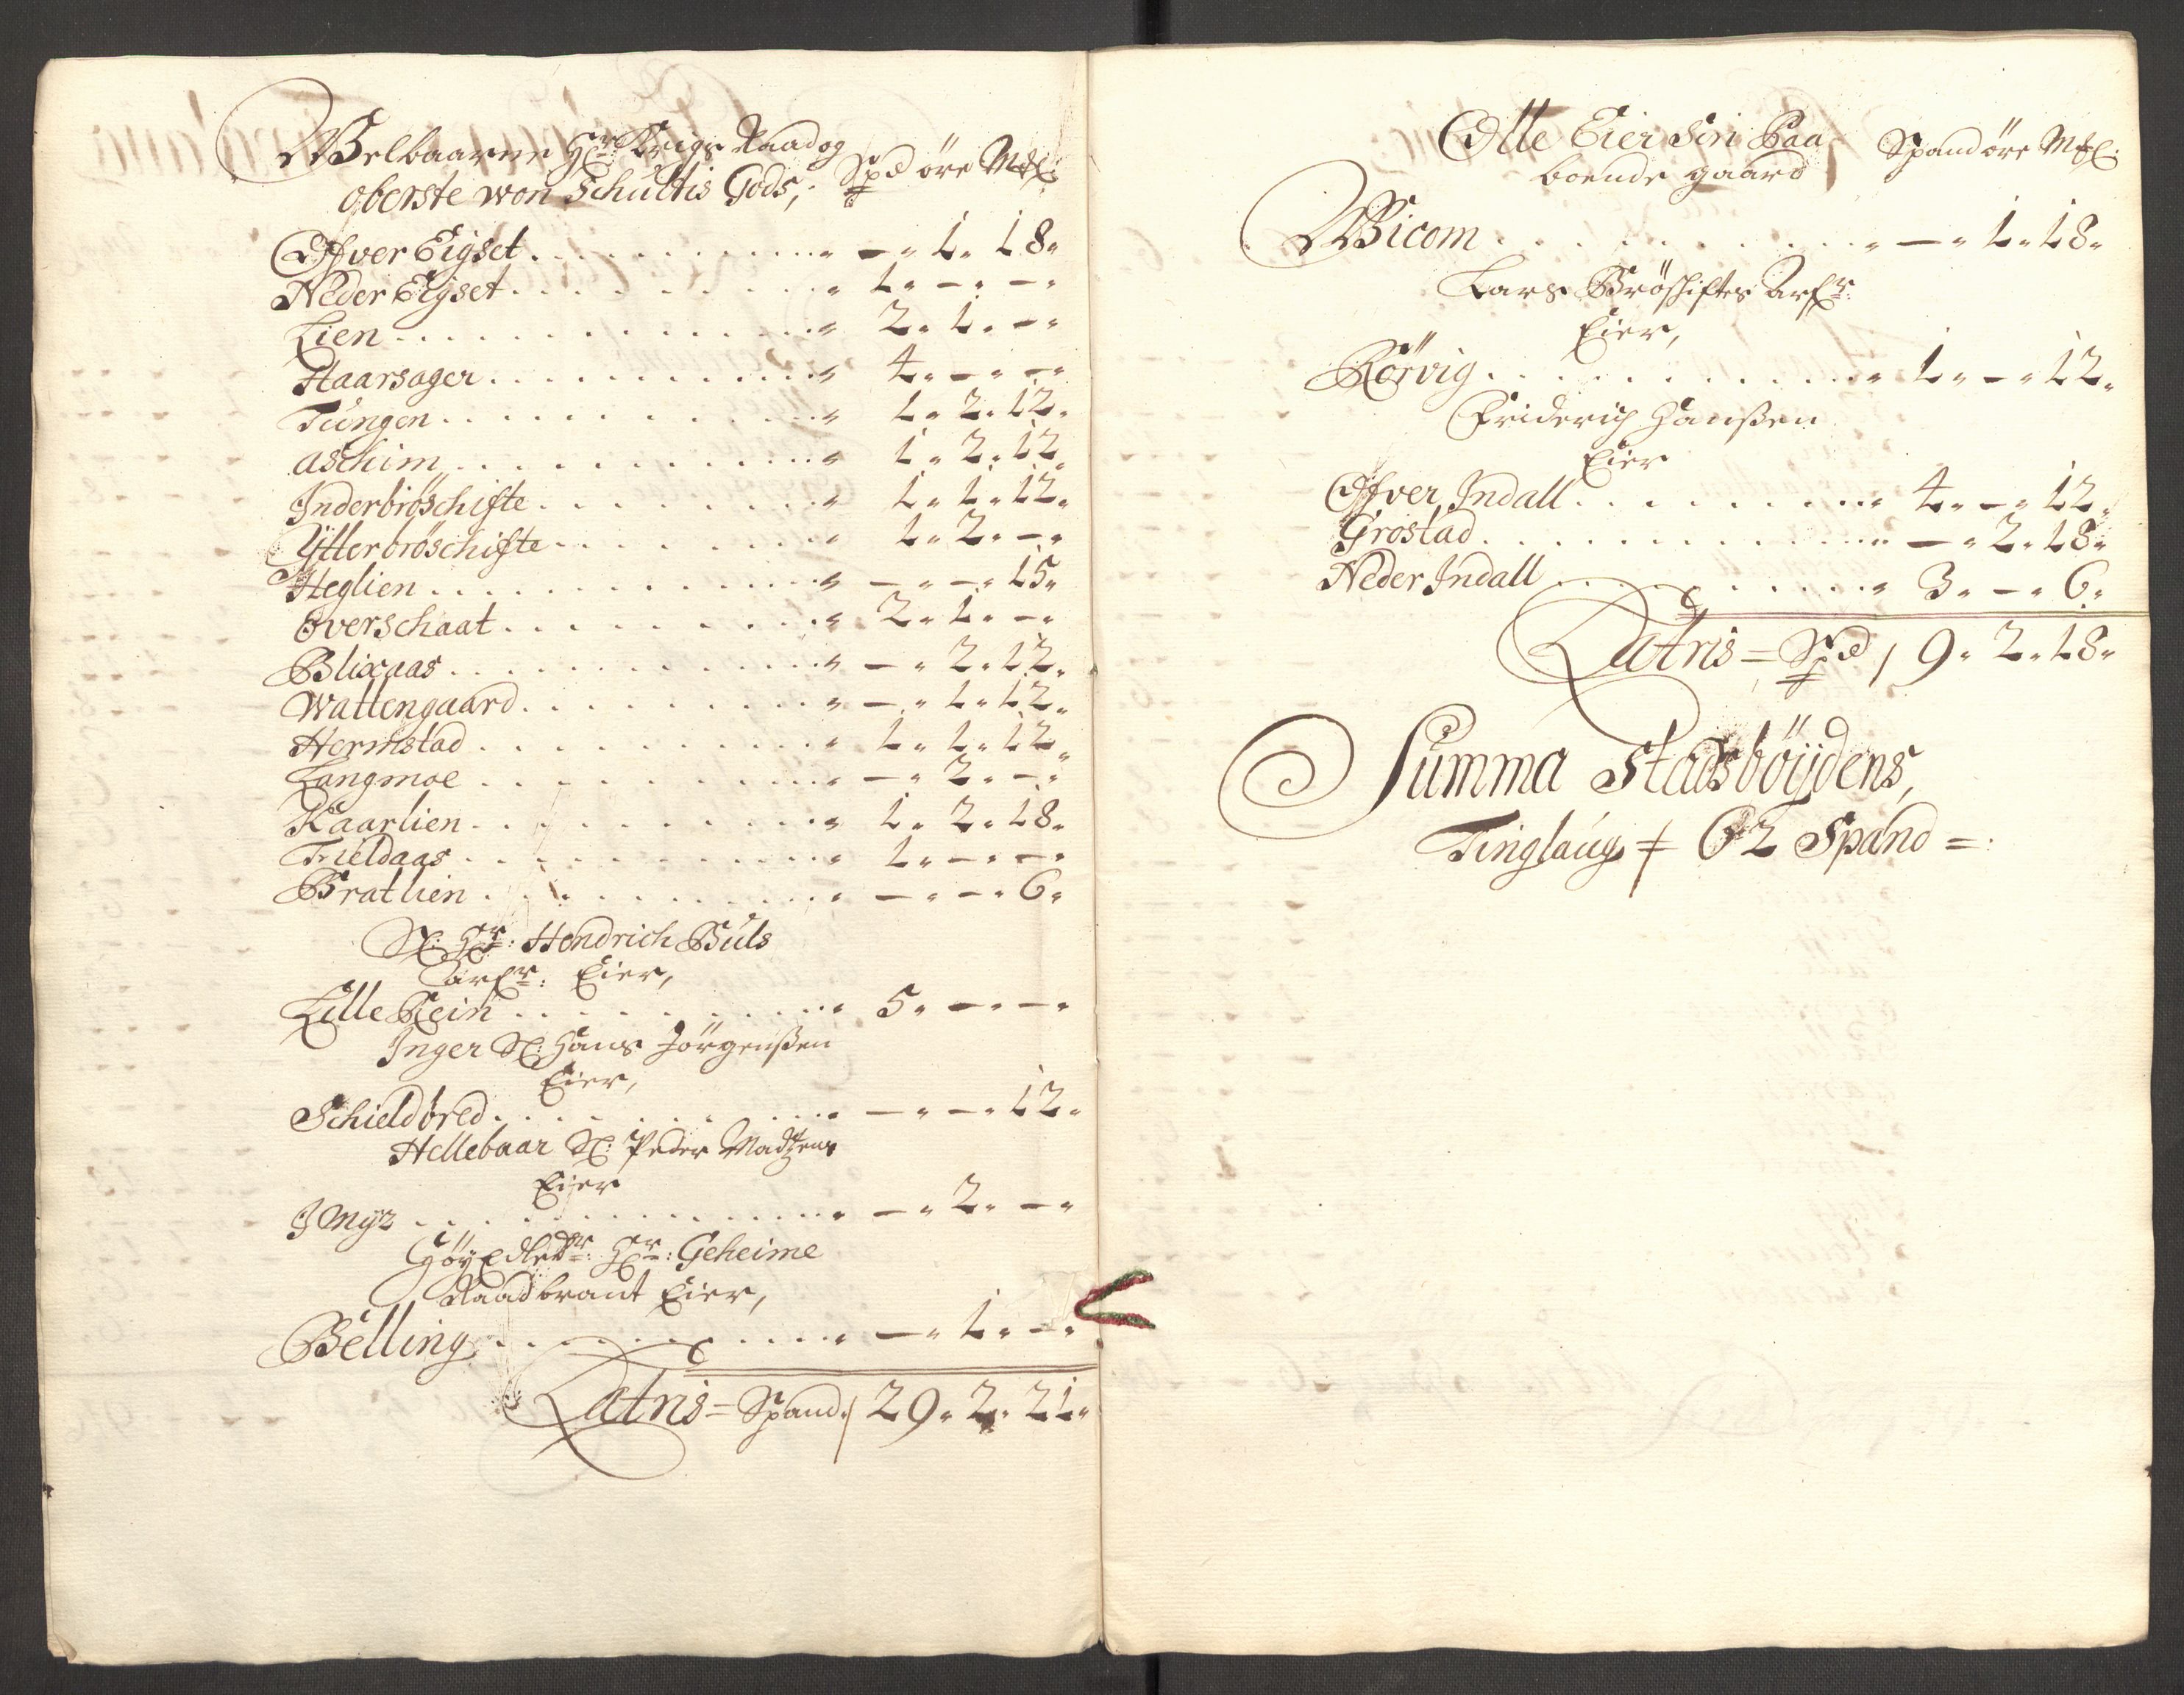 Welbaarne Hr: Krigs Raad og
oberste won Schultis Gods, Spd öre Mkl:
Offver Eigset - 1. 18.
Neder Eigset 1. - -
Lien 2. 1. -
Haarsager 4. - -
Tüngen 1. 2. 12.
aschim 1. 2. 12.
Inderbröschifte 1. 1. 12.
Ytterbröschifte 1. 2. -
Heglien - - 15.
Overschaat 2. 1. -
Blixaas - 2. 12.
Wattengaard - 1. 12.
Hermstad 1. 1. 12.
Langmoe - 2. -
Kaarlien 1. 2. 18.
Fieldaas 1. - -
Bratlien - - 6.
Sl: Hr: Hendrich Büls
arfr: Eier,
Lille Rein 5. - -
Inger Sl: Hans Jörgenßen
Eier,
Schieldbred - - 12.
Hellebaar Sl: Peder Madtzens
Eier
I Myr - 2. -
HöyEdle Hr: Geheime
Raad brant Eier,
Belling - 1. -
Latris = Spand / 29. 2. 21.
Olle Eier Siri Paa Spand öre Mkl:
boende gaard
Wicom - 1. 18.
Lars Bröschiftes Arfr:
Eier,
Rörvig 1. - 12.
Friderich Hanßen
Eier
Offver Indall 4. - 12.
Grostad - 2. 18.
Neder Indall 3. - 6.
Latris = Spd / 9. 2. 18.
Summa Stadsböÿdens,
Tinglaug 62 Spand =: